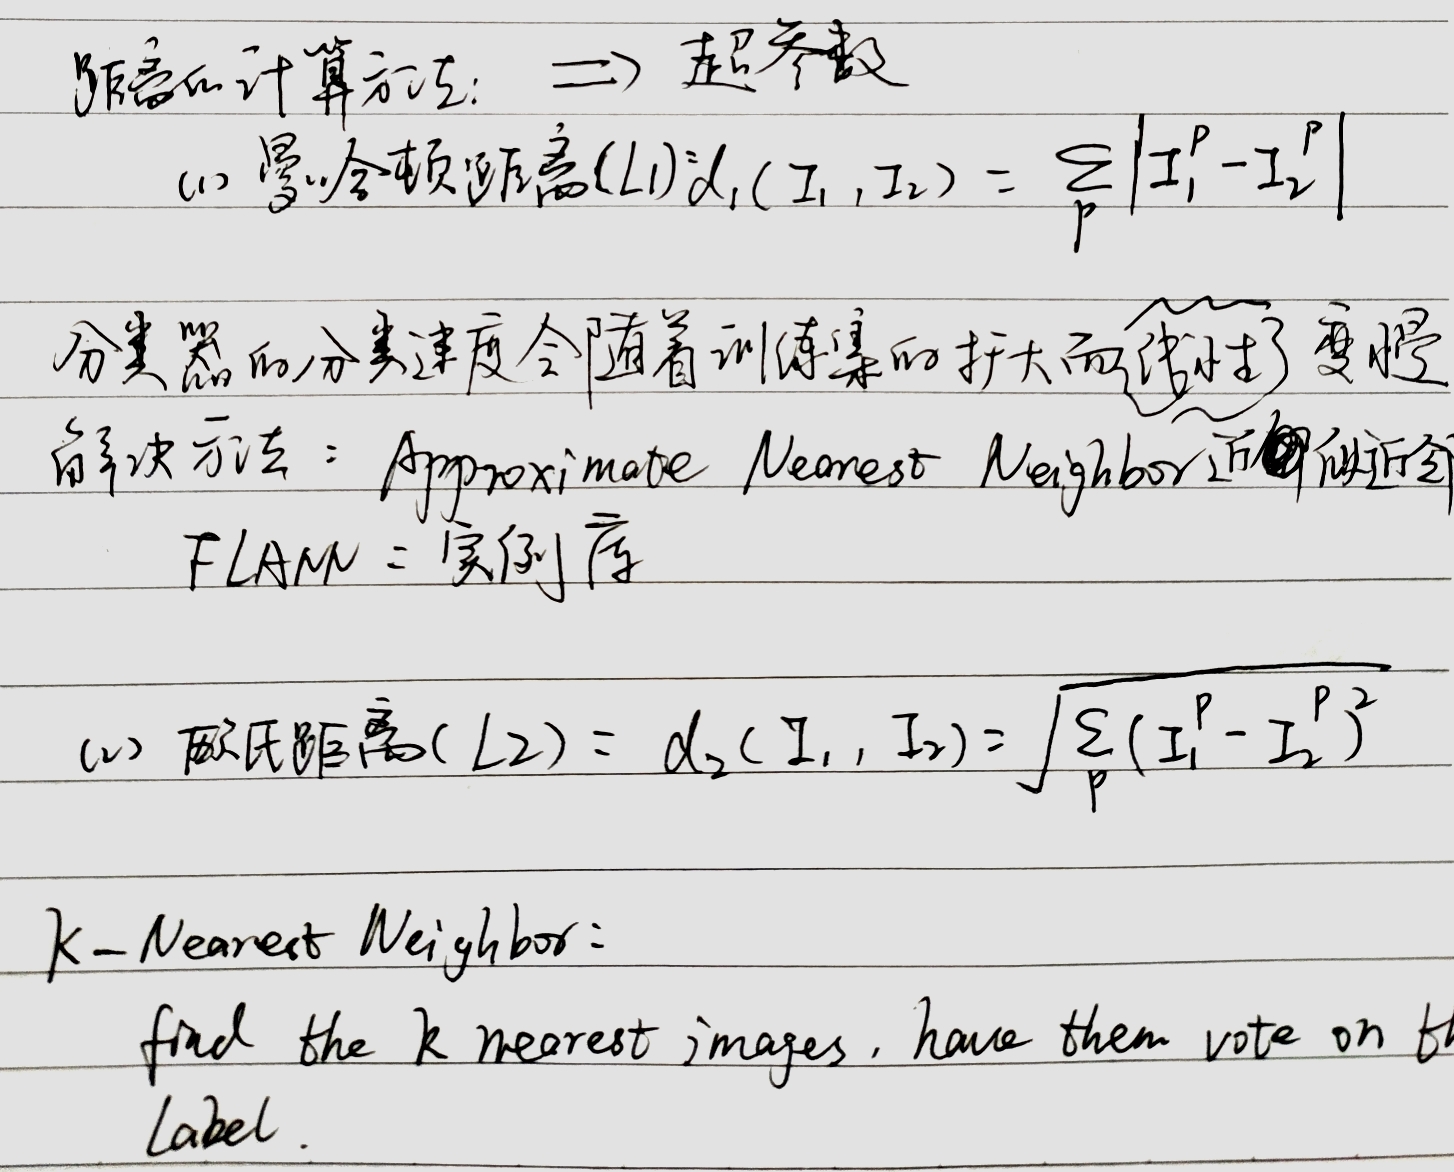 距离的计算方法: => 超参数
(1) 曼哈顿距离(L1): d₁(I₁, I₂) = ∑_p |I₁^p - I₂^p|
分类器的分类速度会随着训练集的扩大而线性了变慢
解决方法: Approximate Nearest Neighbor 近似近邻
FLANN: 实例库
(2) 欧氏距离(L2): d₂(I₁, I₂) = √∑_p (I₁^p - I₂^p)²
K-Nearest Neighbor:
find the k nearest images, have them vote on th
Label.